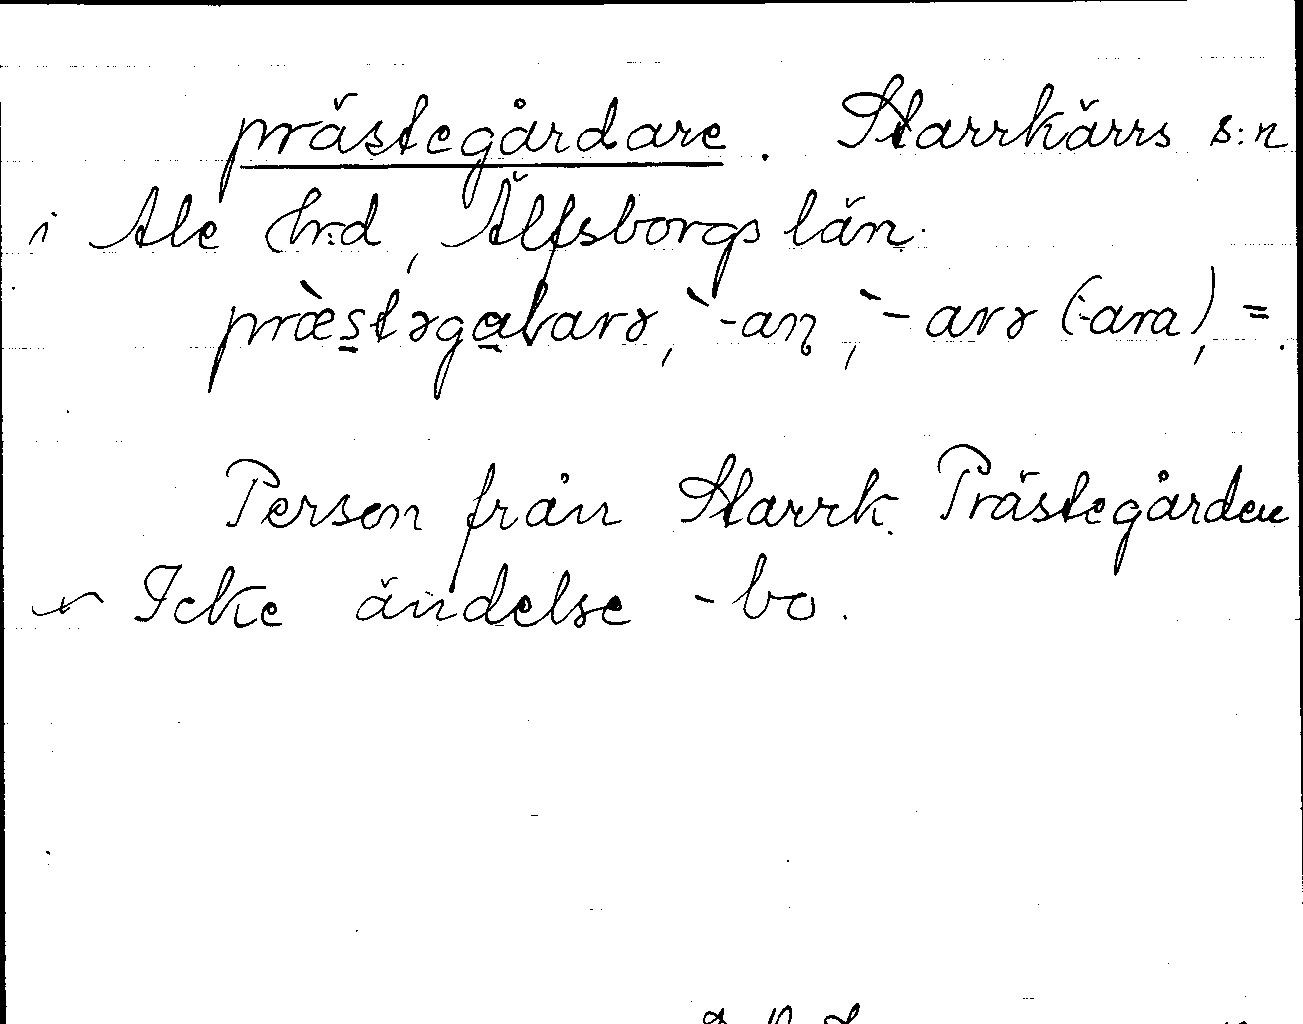 prästegårdare. Starrkärrs s:n
i Ale hrd, Älfsborgs län.
præ̀stəga̲barə, `-an, `-arə (-ara), =.
Person från Starrk. Prästegården
Icke ändelse -bo.